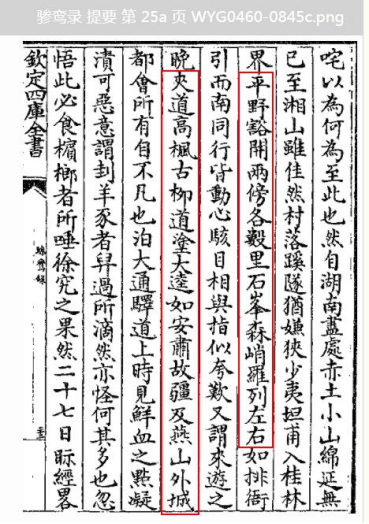 骖鸾录 提要 第 25a 页 WYG0460-0845c.png
咤以為何為至此也然自湖南盡處赤土小山綿延無
已至湘山雖佳然村落蹊隧猶嫌狹少夷坦甫入桂林
界平野豁開兩傍各數里石峯森峭羅列左右如排衙
引而南同行皆動心駭目相與指似夸歎又謂來遊之
晚夾道高楓古栁道塗大逵如安肅故疆及燕山外城
都會所有自不凡也泊大通驛道上時見鮮血之點凝
漬可惡意謂刲羊豕者舁過所滴然亦怪何其多也忽
悟此必食檳榔者所唾徐究之果然二十七日眎經畧
欽定四庫全書
驂鸞錄